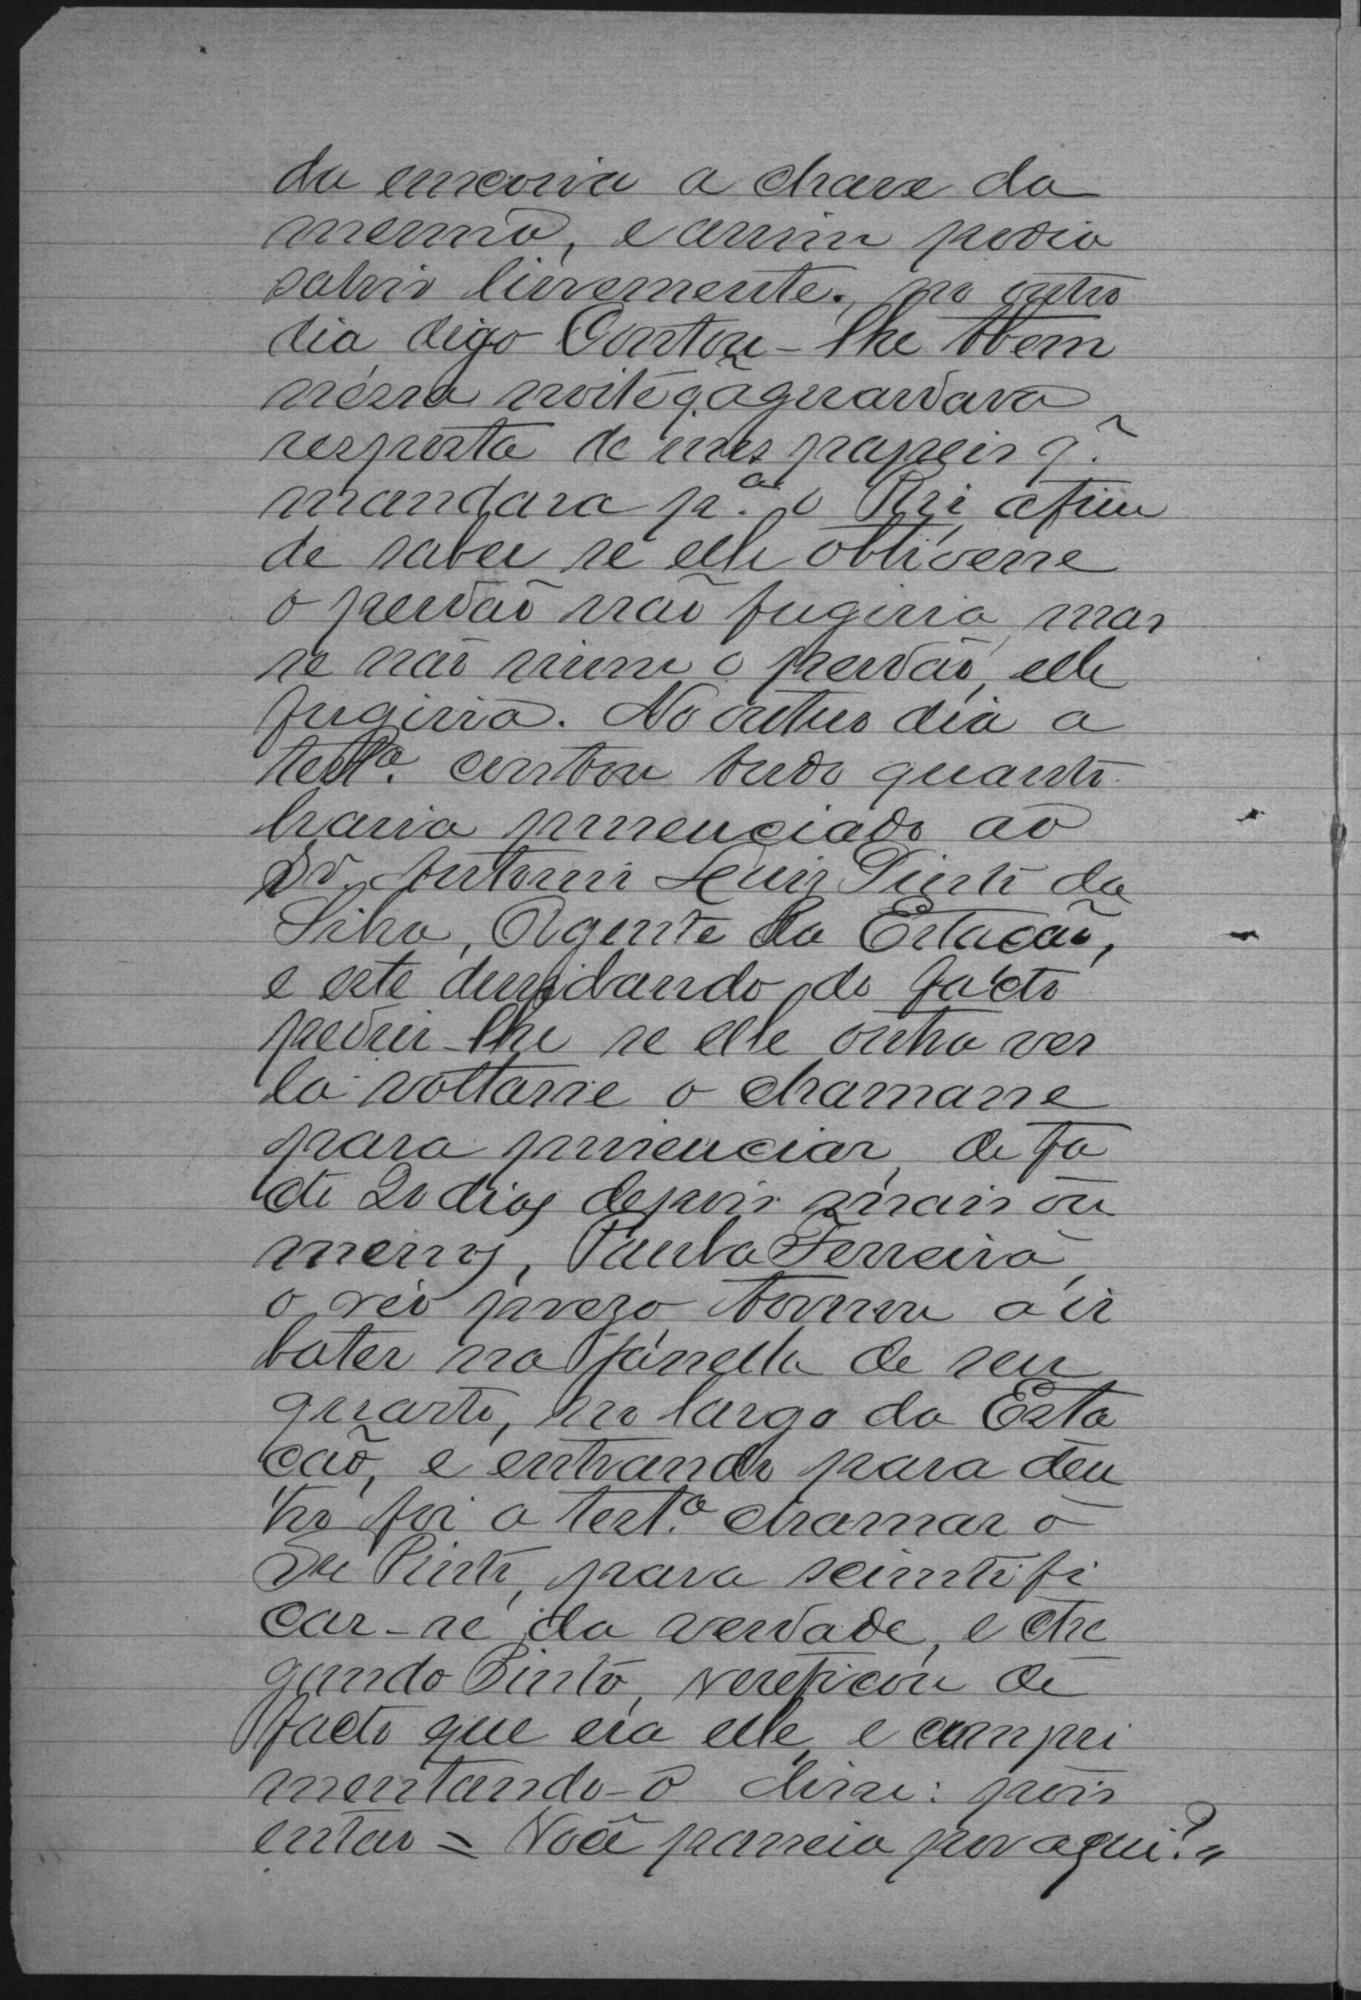 da enxovia a chave da
mesma, e assim podia
sahir livremente. no outro
dia digo Contou-lhe tbem
nessa noite q. aguardava
resposta de uns papeis q.
mandara p.ª o Rio, afim
de saber se elle obtivesse
o perdão não fugiria, mas
se não viesse o perdão, elle
fugiria. No outro dia a
test.ª contou tudo quanto
havia presenciado ao
Sr. Antonio Luiz Pinto da
Silva, Agente da Estação,
e este duvidando do facto
pediu-lhe se elle outra vez
la voltasse o chamasse
para presenciar, de fa
cto 20 dias depois mais ou
menos, Paula Ferreira,
o reo prezo tornou a ir
bater na janella de seu
quarto, no largo da Esta
ção, e entrando para den
tro foi a test.ª chamar o
Sr Pinto, para scientifi
car-se da verdade, e che
gando Pinto, verificou de
facto que era elle, e compri
mentando-o disse: pois
então = Você passeia por aqui? "